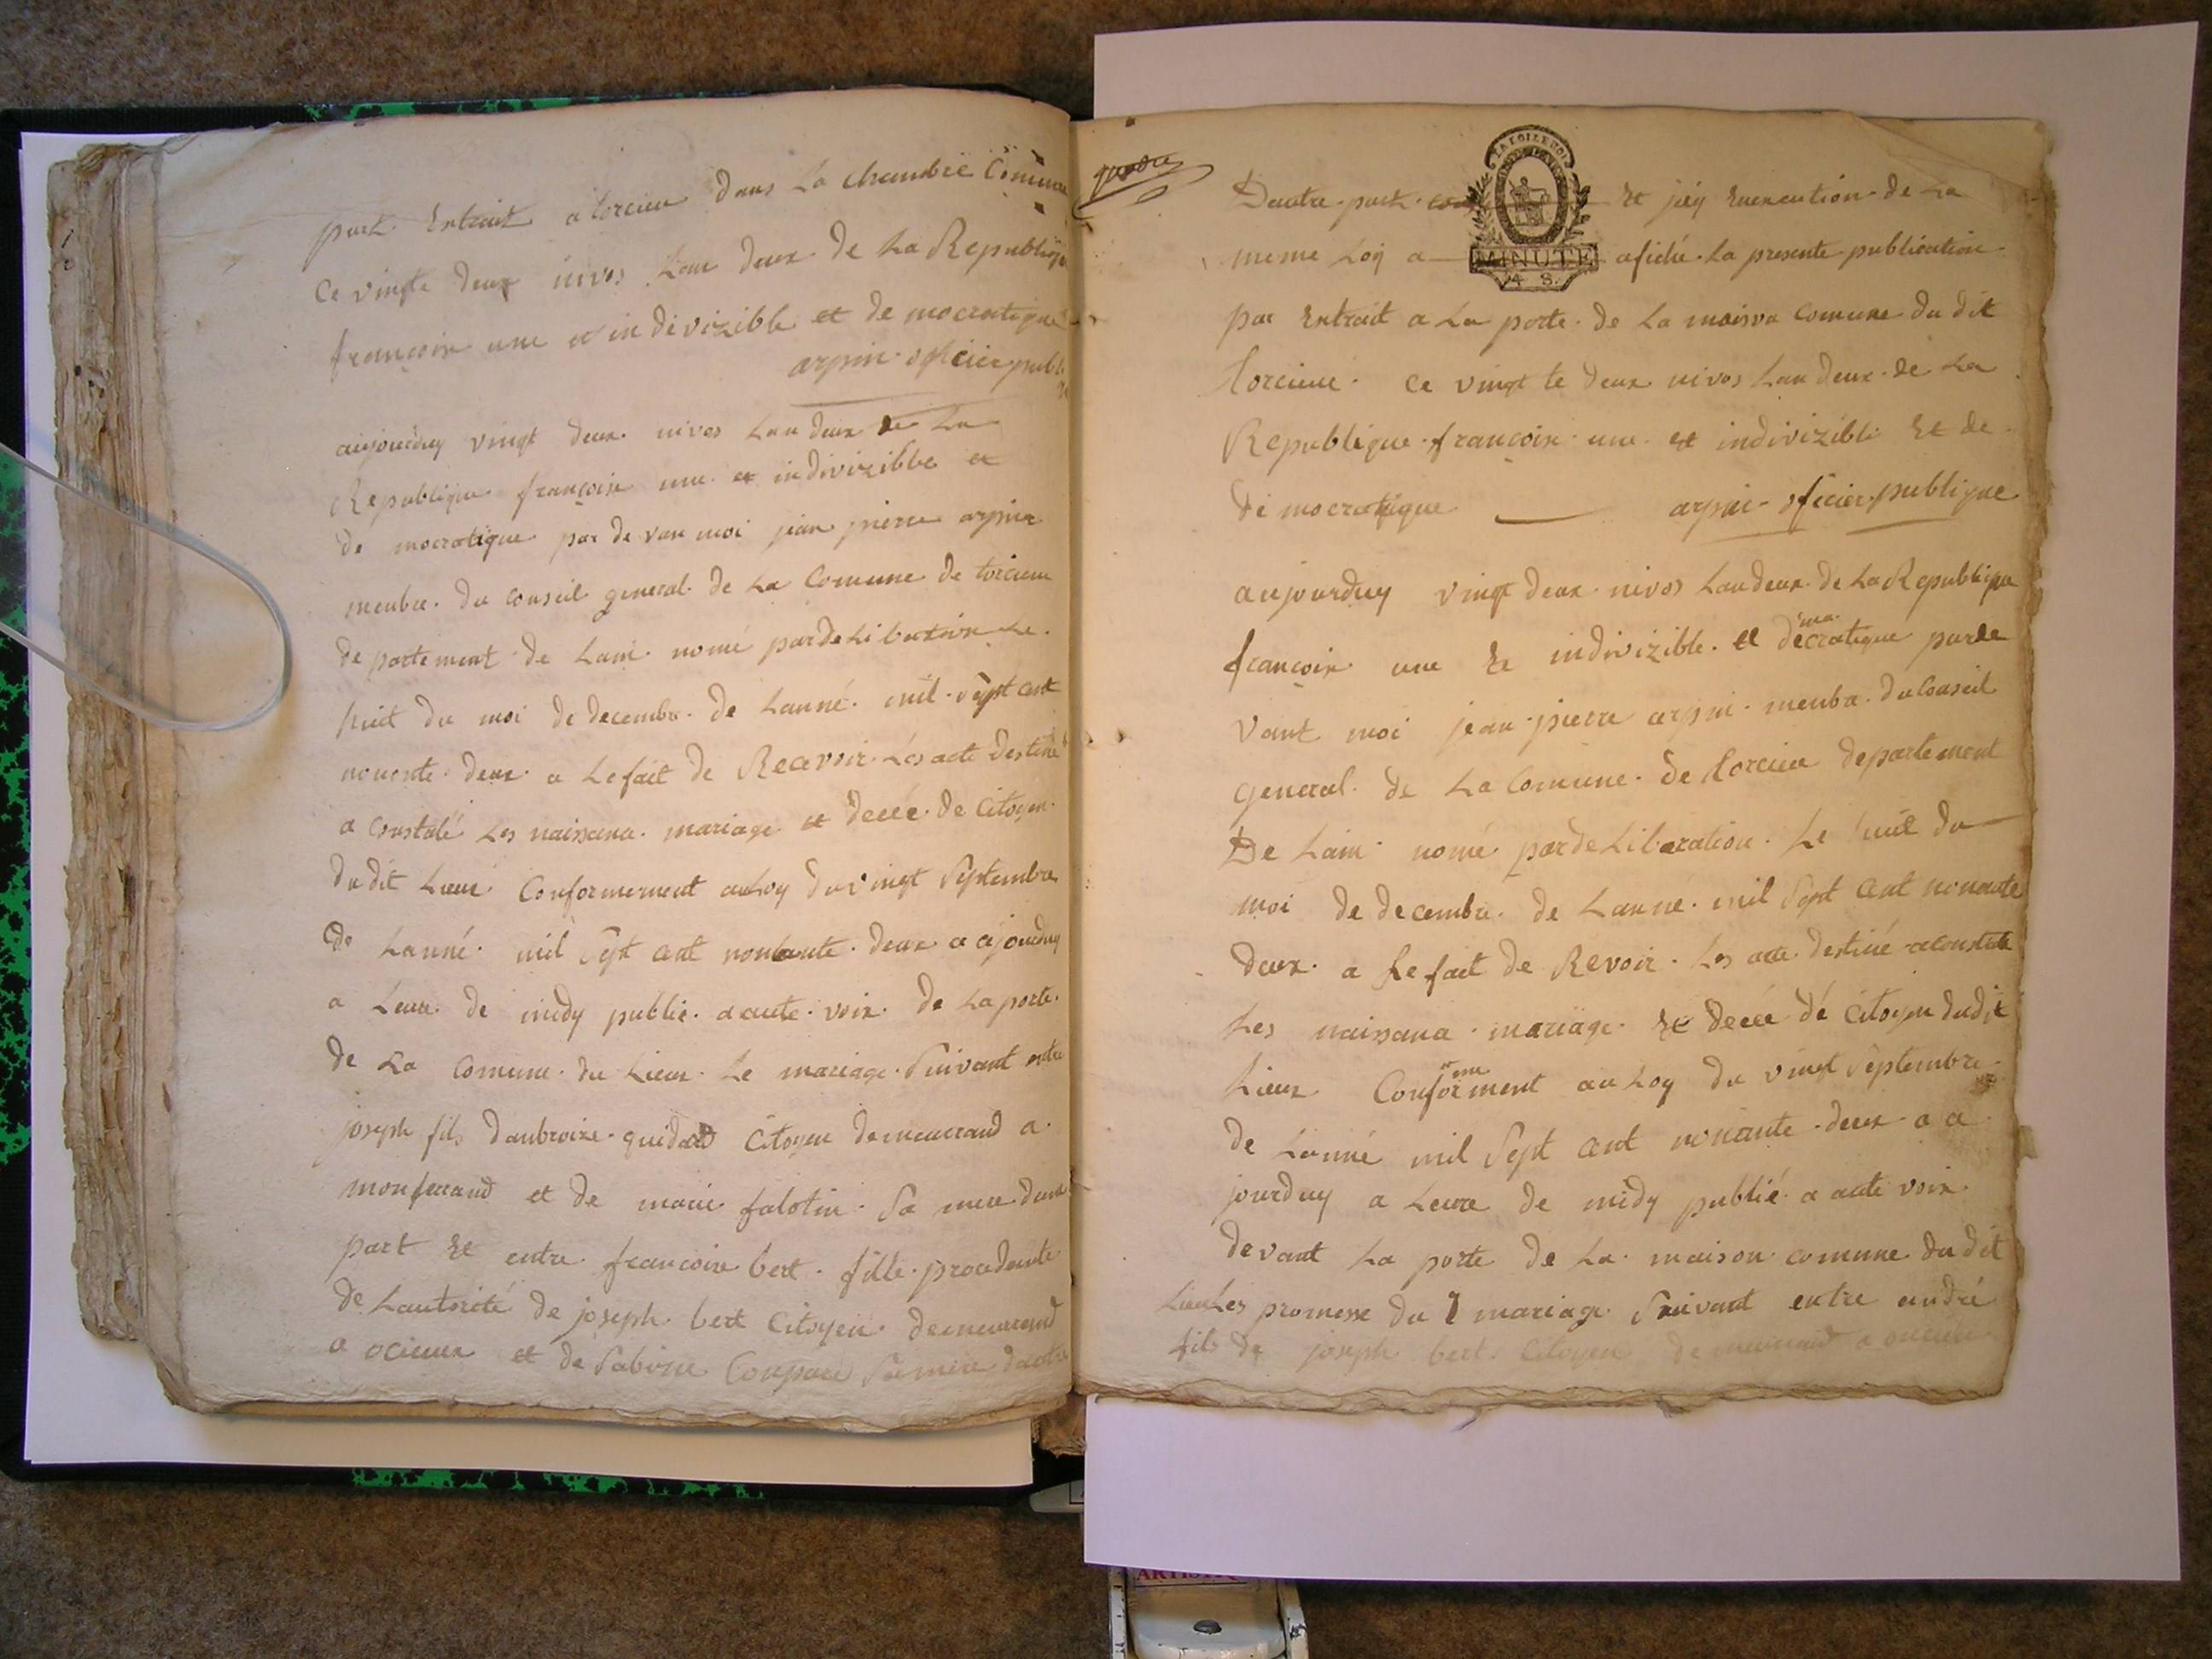 part Extrait a torcieu dans La chambre Comune
Ce vingte deux nivos Lan deux de La Republique
françoise une et in divizible et de mocratique
arpin officier publi
aujourduy vingt deux nivos Lan deux de La
Republique françoise une et indivizible et
de mocratique par de van moi jean pierre arpin
menbre du conseil general de La Comune de torcieu
de partement de Lain nomé par de Liberation Le
huit du moi de decembre de Lanné mil sept cent
nonente deux a Le fait de Recevoir Les acte destiné
a constaté Les naissance mariage et decée de Citoyen
du dit Lieux Conformement au Loy du vingt Septembre
de Lanné mil Sept cent nonante deux a ajourduy
a Leure de midy publié a aute voix de La porte
de La comune du Lieux Le mariage Suivant entre
joseph fils danbroize quidard Citoyen demeurand a
monferrand et de marie falotin Sa mere dune
part Et entre francoise bert fille procedente
de Lautorité de joseph bert Citoyen demeurrend
a ocieux et de Sabine Sa mere dautre
Dautre part Et jéy Enexecution de La
LA LOI LE ROI
meme Loy a afiché La presente publication
MINUTE
4 S.
par Extrait a La porte de La maison comune du dit
torcieu Ce vingt te deux nivos Lan deux de La
Republique françoise une et indivizible Et de
de mocratique arpin officier publique
aujourduy vingt deux nivos Lan deux de La Republique
françoise une Et indivizible et decratique par de
mo
vant moi jean pierre arpin menbre du Conseil
general de La Comune de torcieu departement
De Lain nomé par de Liberation Le huit du
moi de decembre de Lanne mil Sept cent nonante
deux a Le fait de Revoir Les acte destiné a constate
Les naissance mariage Et decée dé Citoyen dudit
Lieux Conforment au Loy du vingt Septembre
eme
de Lanné mil Sept cent nonante deux a a
jourduy a Leure de midy publié a aute voix
devant La porte de La maison comune du dit
Lieu Les promesse du mariage Suivant entre andré
fils de joseph bert Citoyen demeurand a ocieux